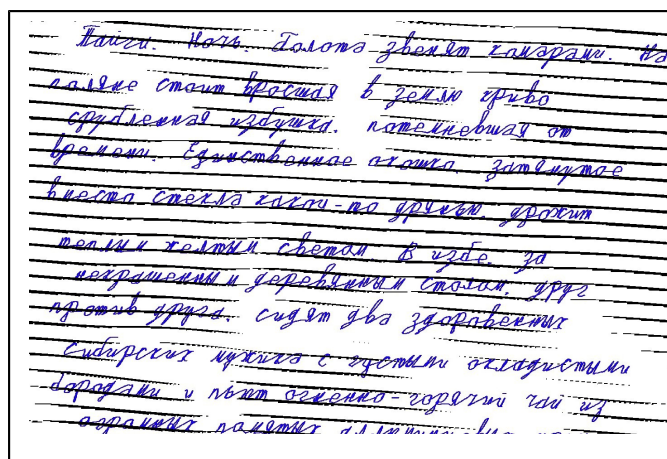 Тайга. Ночь. Болота звенят комарами. На
поляне стоит вросшая в землю криво
срубленная избушка, потемневшая от
времени. Единственное окошко, затянутое
вместо стекла какой-то дрянью, дрожит
теплым желтым светом. В избе, за
некрашенным деревянным столом, друг
против друга, сидят два здоровенных
сибирских мужика с густыми окладистыми
бородами и пьют огненно-горячий чай из
огромных помятых